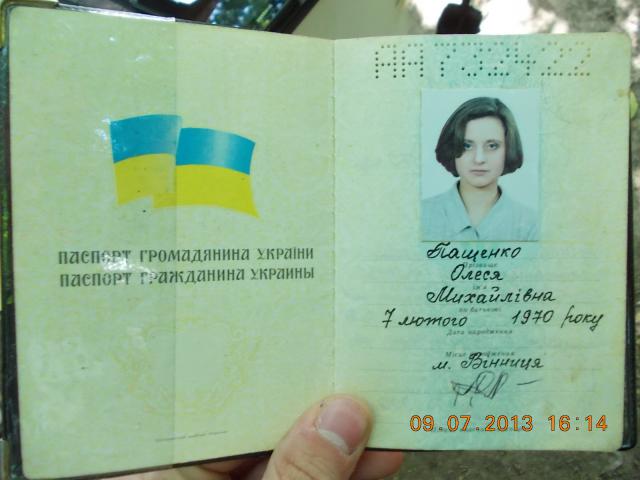 ПАСПОРТ ГРОМАДЯНИНА УКРАЇНИ
ПАСПОРТ ГРАЖДАНИНА УКРАИНЫ
Пащенко
Прізвище
Олеся
Ім'я
Михайлівна
по батькові
7 лютого 1970 року
Дата народження
Місце народження
м. Вінниця
09.07.2013 16:14